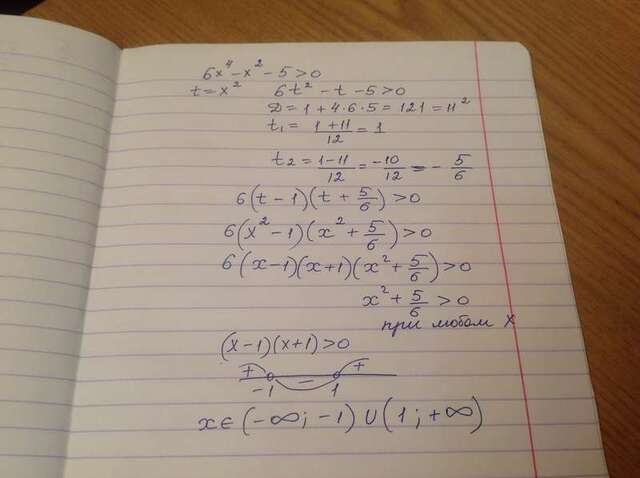 6x⁴ - x² - 5 > 0
t = x² 6t² - t - 5 > 0
D = 1 + 4·6·5 = 121 = 11²
t₁ = (1+11)/12 = 1
t₂ = (1-11)/12 = -10/12 = -5/6
6(t - 1)(t + 5/6) > 0
6(x² - 1)(x² + 5/6) > 0
6(x - 1)(x + 1)(x² + 5/6) > 0
x² + 5/6 > 0
при любом x
(x - 1)(x + 1) > 0
+ - +
-1 1
x ∈ (-∞; -1) ∪ (1; +∞)